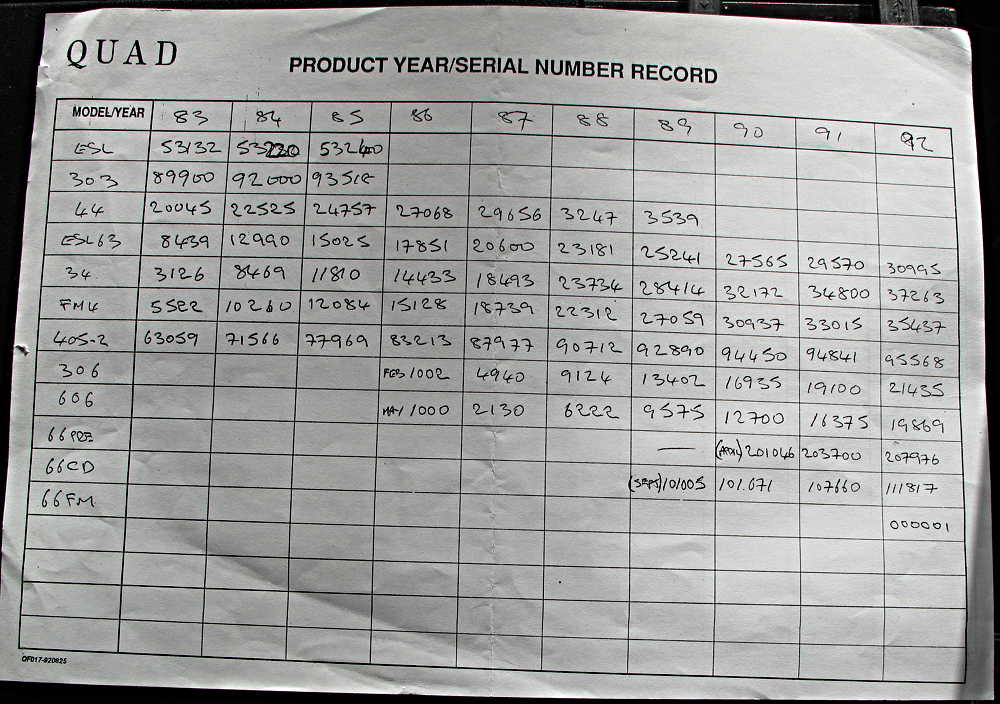 QUAD
PRODUCT YEAR/SERIAL NUMBER RECORD
MODEL/YEAR 83 84 85 86 87 88 89 90 91 92
ESL 53132 53230 53240
303 89900 92000 93518
44 20045 22525 24757 27068 29656 3247 3539
ESL63 8439 12990 15025 17851 20600 23181 25241 27565 29570 30995
34 3126 8469 11810 14433 18493 23734 28414 32172 34800 37263
FM4 5522 10260 12084 15128 18739 22312 27059 30937 33015 35437
405-2 63059 71566 77969 83213 87977 90712 92890 94450 94841 95568
306 FEB/002 4940 9124 13402 16935 19100 21435
606 MAY/000 2130 6222 9575 12700 16375 19869
66PRE — (APRIL) 201046 203700 207976
66CD (SEPT) 101005 101.671 107660 111817
66FM 000001
QF017-920825